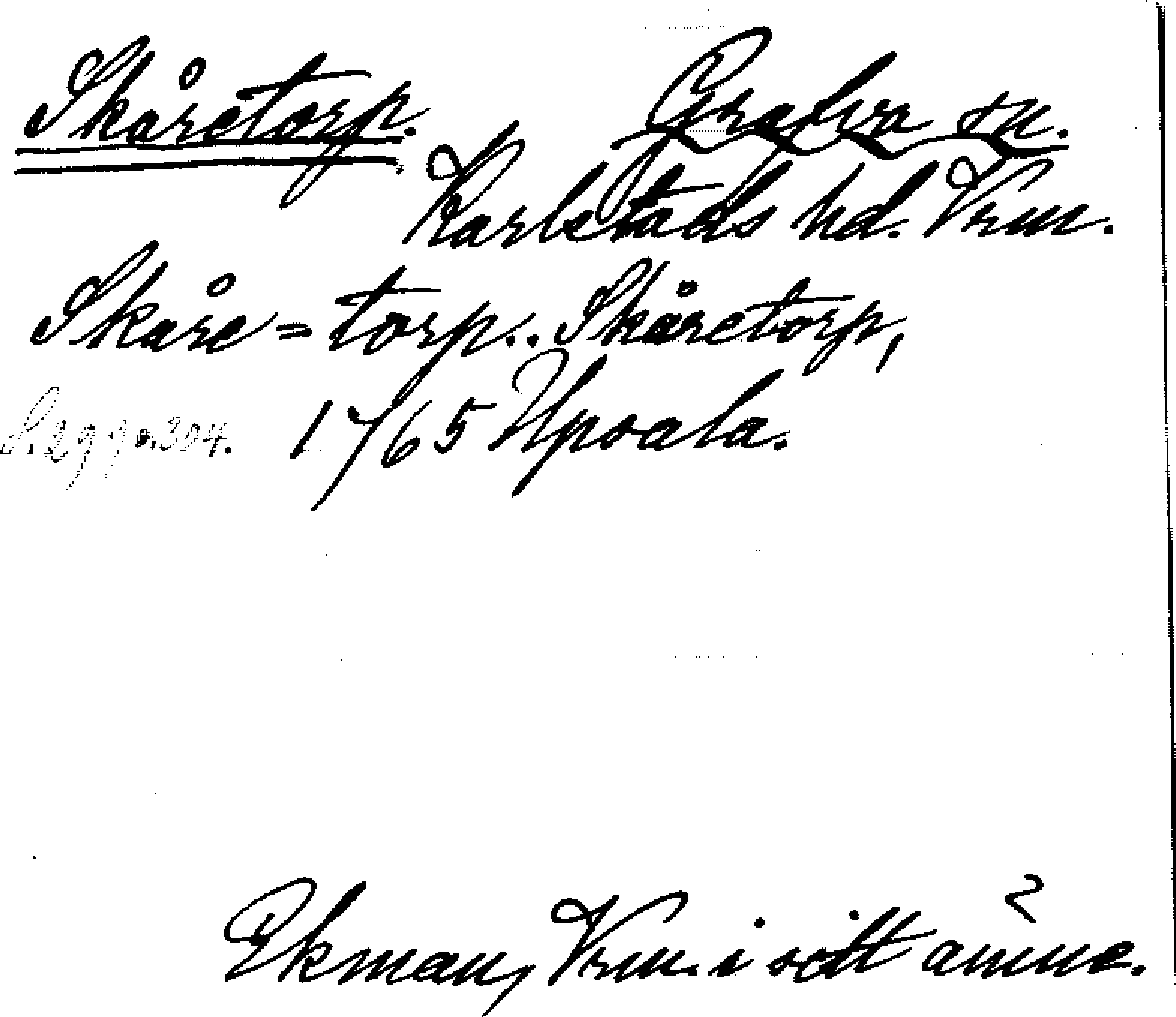 Skåretorp. Grava sn.
Karlstads hd. Vrm.
Skåre=torp.. Skåretorp,
1765 Upsala.
Ekman, Vrm. i sitt ämne.